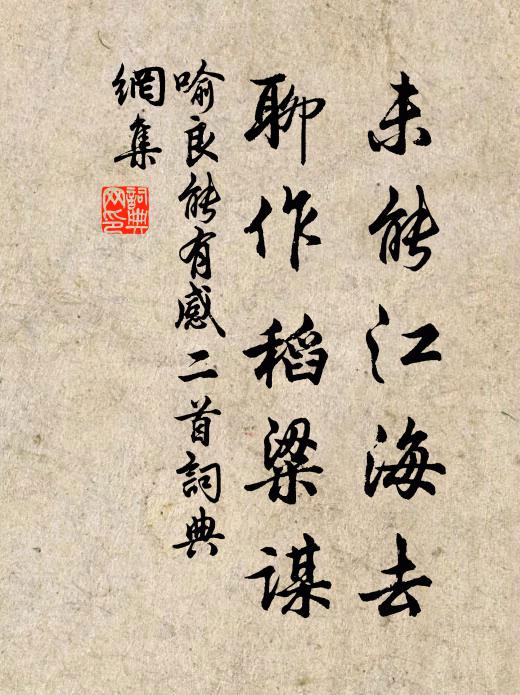 未能江海去
聊作稻粱謀
喻良能有感二首詞典
網集
詞典
网印